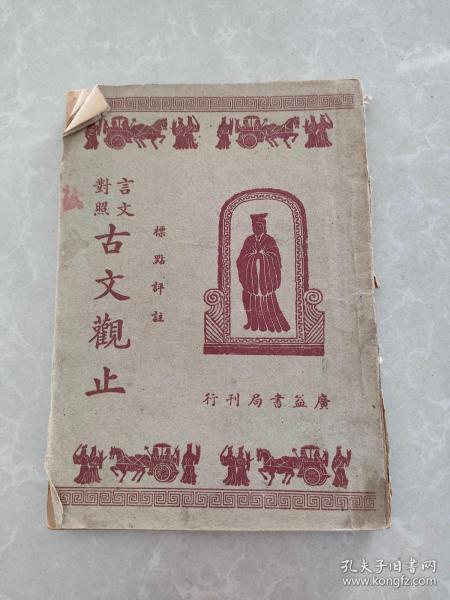 言文
對照
古文觀止
標點評註
廣益書局刊行
孔夫子旧书网
www.kongfz.com